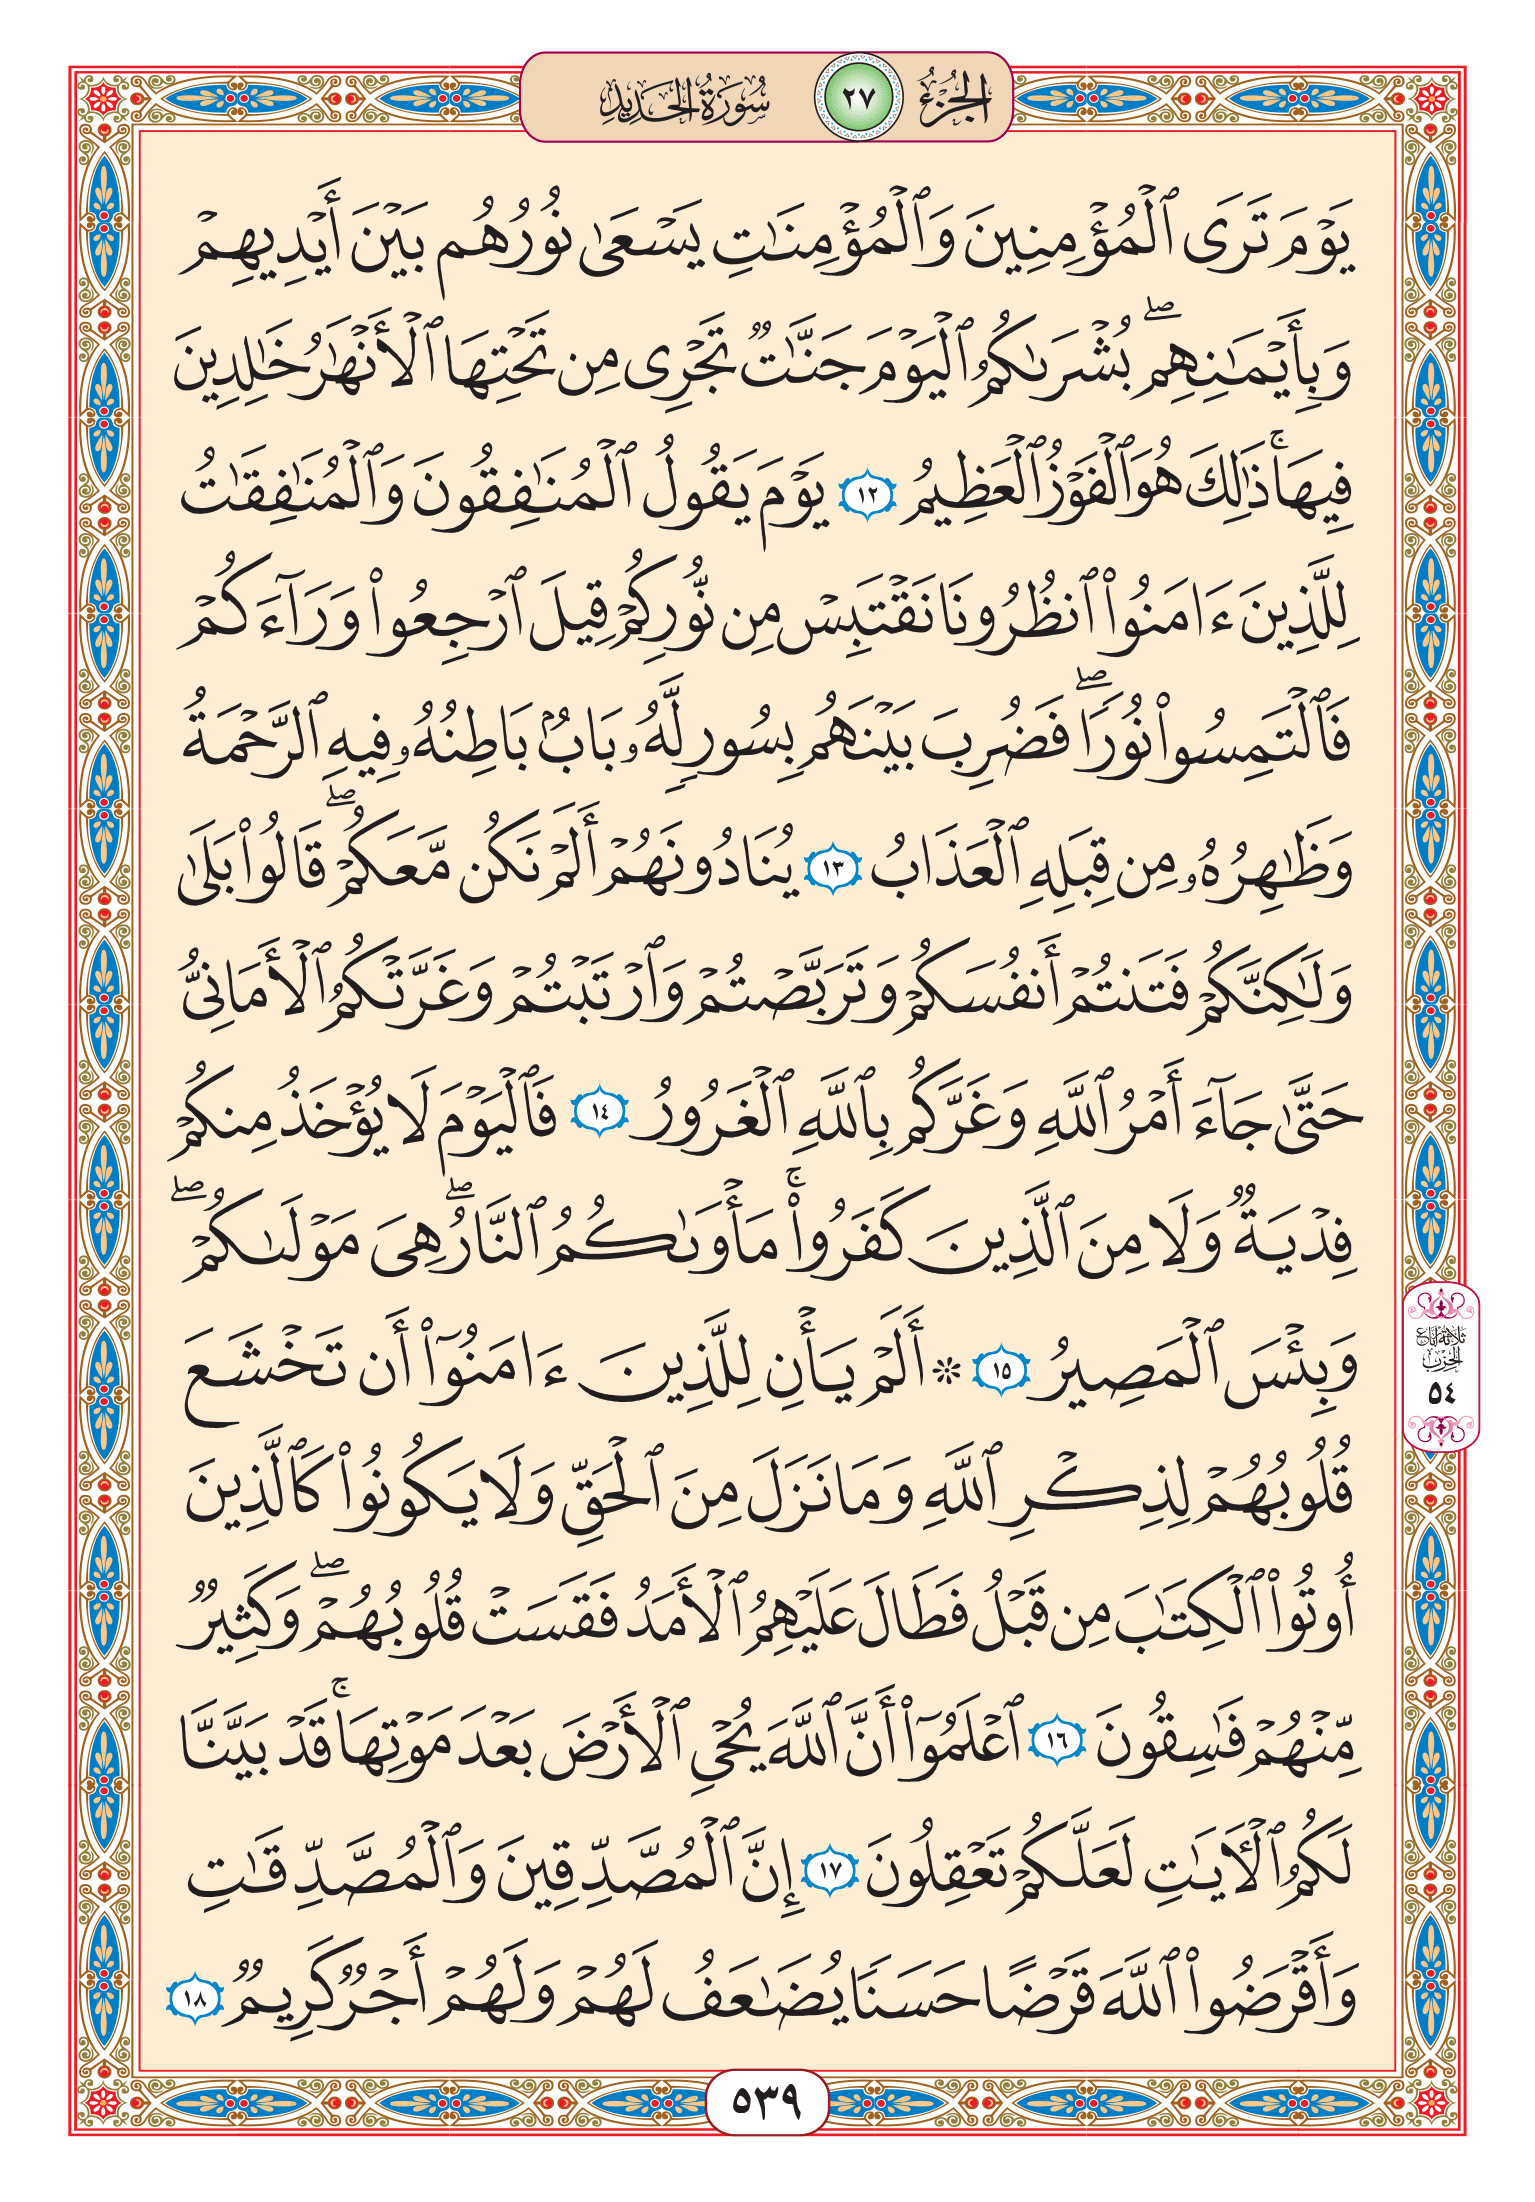 الجزء ٢٧ سورة الحديد
يَوۡمَ تَرَى ٱلۡمُؤۡمِنِينَ وَٱلۡمُؤۡمِنَٰتِ يَسۡعَىٰ نُورُهُم بَيۡنَ أَيۡدِيهِمۡ
وَبِأَيۡمَٰنِهِمۖ بُشۡرَىٰكُمُ ٱلۡيَوۡمَ جَنَّٰتٞ تَجۡرِي مِن تَحۡتِهَا ٱلۡأَنۡهَٰرُ خَٰلِدِينَ
فِيهَاۚ ذَٰلِكَ هُوَ ٱلۡفَوۡزُ ٱلۡعَظِيمُ ١٢ يَوۡمَ يَقُولُ ٱلۡمُنَٰفِقُونَ وَٱلۡمُنَٰفِقَٰتُ
لِلَّذِينَ ءَامَنُواْ ٱنظُرُونَا نَقۡتَبِسۡ مِن نُّورِكُمۡ قِيلَ ٱرۡجِعُواْ وَرَآءَكُمۡ
فَٱلۡتَمِسُواْ نُورٗاۖ فَضُرِبَ بَيۡنَهُم بِسُورٖ لَّهُۥ بَابُۢ بَاطِنُهُۥ فِيهِ ٱلرَّحۡمَةُ
وَظَٰهِرُهُۥ مِن قِبَلِهِ ٱلۡعَذَابُ ١٣ يُنَادُونَهُمۡ أَلَمۡ نَكُن مَّعَكُمۡۖ قَالُواْ بَلَىٰ
وَلَٰكِنَّكُمۡ فَتَنتُمۡ أَنفُسَكُمۡ وَتَرَبَّصۡتُمۡ وَٱرۡتَبۡتُمۡ وَغَرَّتۡكُمُ ٱلۡأَمَانِيُّ
حَتَّىٰ جَآءَ أَمۡرُ ٱللَّهِ وَغَرَّكُم بِٱللَّهِ ٱلۡغَرُورُ ١٤ فَٱلۡيَوۡمَ لَا يُؤۡخَذُ مِنكُمۡ
فِدۡيَةٞ وَلَا مِنَ ٱلَّذِينَ كَفَرُواْۚ مَأۡوَىٰكُمُ ٱلنَّارُۖ هِيَ مَوۡلَىٰكُمۡۖ
وَبِئۡسَ ٱلۡمَصِيرُ ١٥ ۞ أَلَمۡ يَأۡنِ لِلَّذِينَ ءَامَنُوٓاْ أَن تَخۡشَعَ
قُلُوبُهُمۡ لِذِكۡرِ ٱللَّهِ وَمَا نَزَلَ مِنَ ٱلۡحَقِّ وَلَا يَكُونُواْ كَٱلَّذِينَ
أُوتُواْ ٱلۡكِتَٰبَ مِن قَبۡلُ فَطَالَ عَلَيۡهِمُ ٱلۡأَمَدُ فَقَسَتۡ قُلُوبُهُمۡۖ وَكَثِيرٞ
مِّنۡهُمۡ فَٰسِقُونَ ١٦ ٱعۡلَمُوٓاْ أَنَّ ٱللَّهَ يُحۡيِ ٱلۡأَرۡضَ بَعۡدَ مَوۡتِهَاۚ قَدۡ بَيَّنَّا
لَكُمُ ٱلۡأٓيَٰتِ لَعَلَّكُمۡ تَعۡقِلُونَ ١٧ إِنَّ ٱلۡمُصَّدِّقِينَ وَٱلۡمُصَّدِّقَٰتِ
وَأَقۡرَضُواْ ٱللَّهَ قَرۡضًا حَسَنٗا يُضَٰعَفُ لَهُمۡ وَلَهُمۡ أَجۡرٞ كَرِيمٞ ١٨
ثلاثة أرباع
الحزب
٥٤
٥٣٩